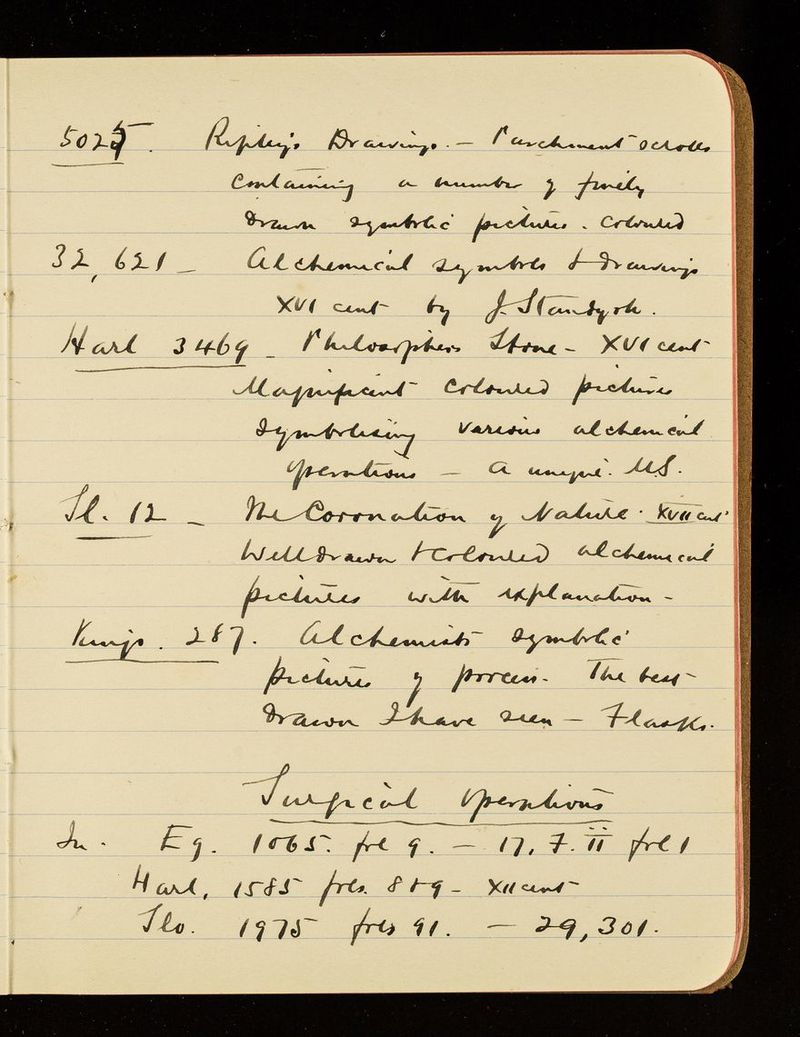 5025. Ripley's Drawings. – Parchment scrolls
containing a number of finely
drawn symbolic pictures. coloured
32,621 – Alchemical symbols & drawings
XVI cent by J. Standysh.
Harl 3469 – Philosophers Stone – XVI cent
Magnificent coloured pictures
symbolising various alchemical
operations – a unique. M.S.
Sl. 12 – The Coronation of Nature. XVII cent
Well drawn & coloured alchemical
pictures with explanation –
Kings. 287. Alchemists symbolic
pictures of process. The best
drawn I have seen – Flasks.
Surgical Operations
In. Eg. 1065. fol 9. – 17. F. ii fol 1
Harl. 1585 fols. 8 & 9 – XII cent
Slo. 1975 fols 91. – 29,301.